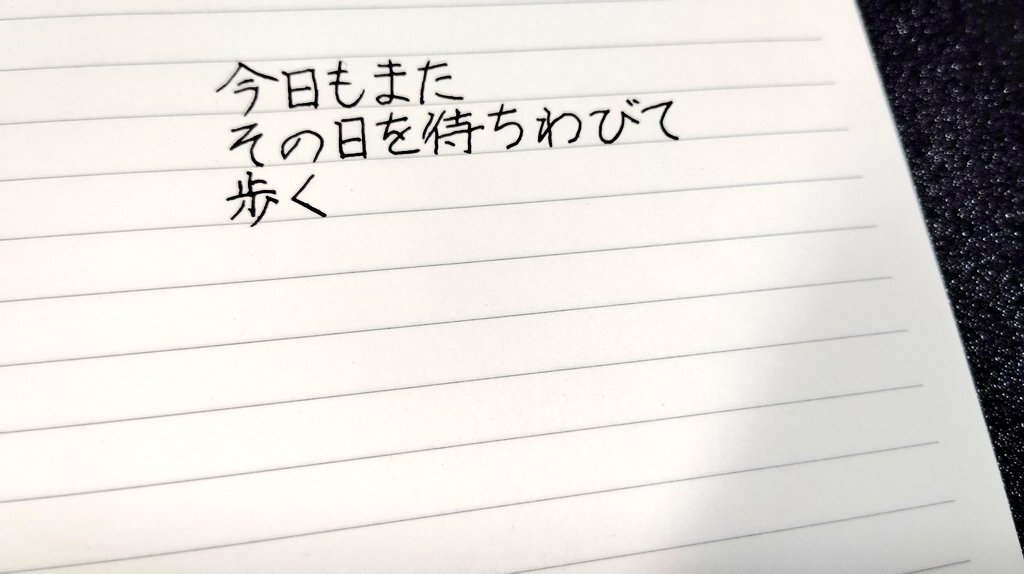 今日もまた
その日を待ちわびて
歩く